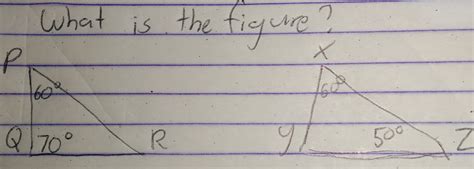 What is the figure?
P X
60° 60°
Q 70° R y 50° Z